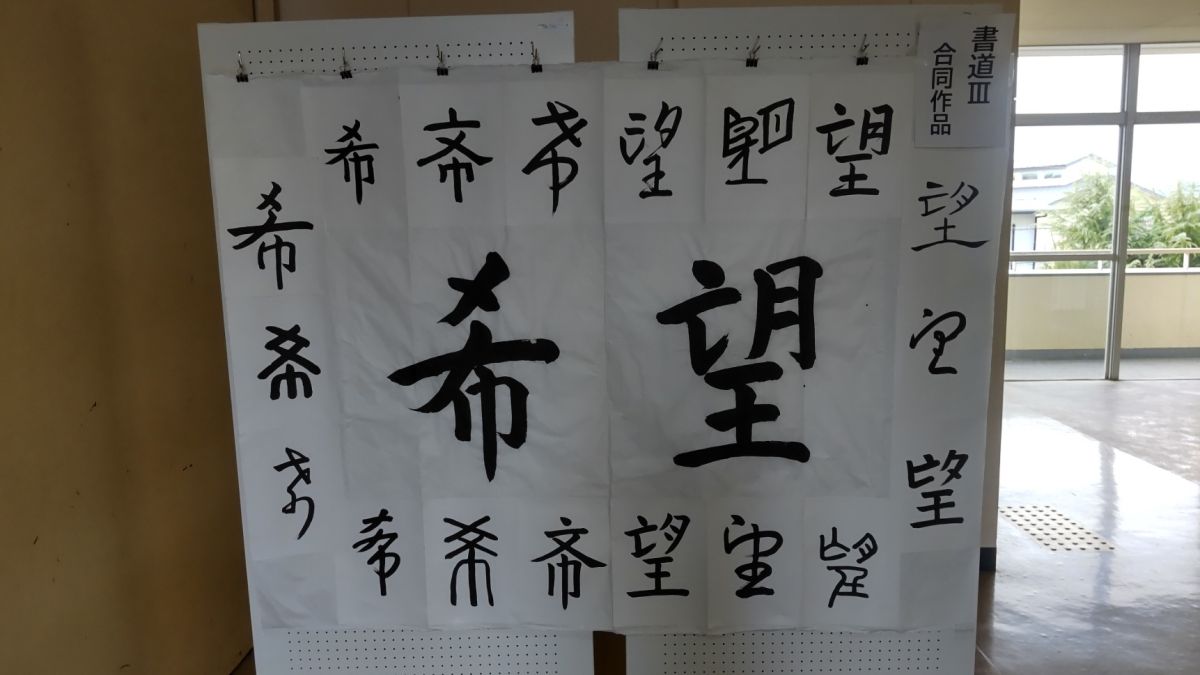 書道Ⅲ
合同作品
希 希 希 望 望 望
希望
希
希
希
望
望
望
希 希 希 望 望 望